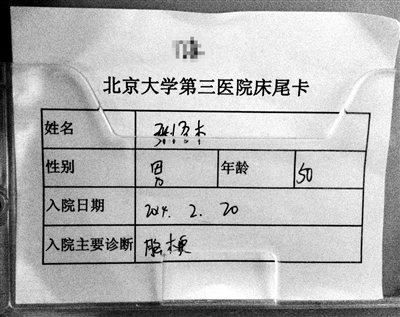 北京大学第三医院床尾卡
姓名
性别 男 年龄 50
入院日期 2014. 2. 20
入院主要诊断 脑梗